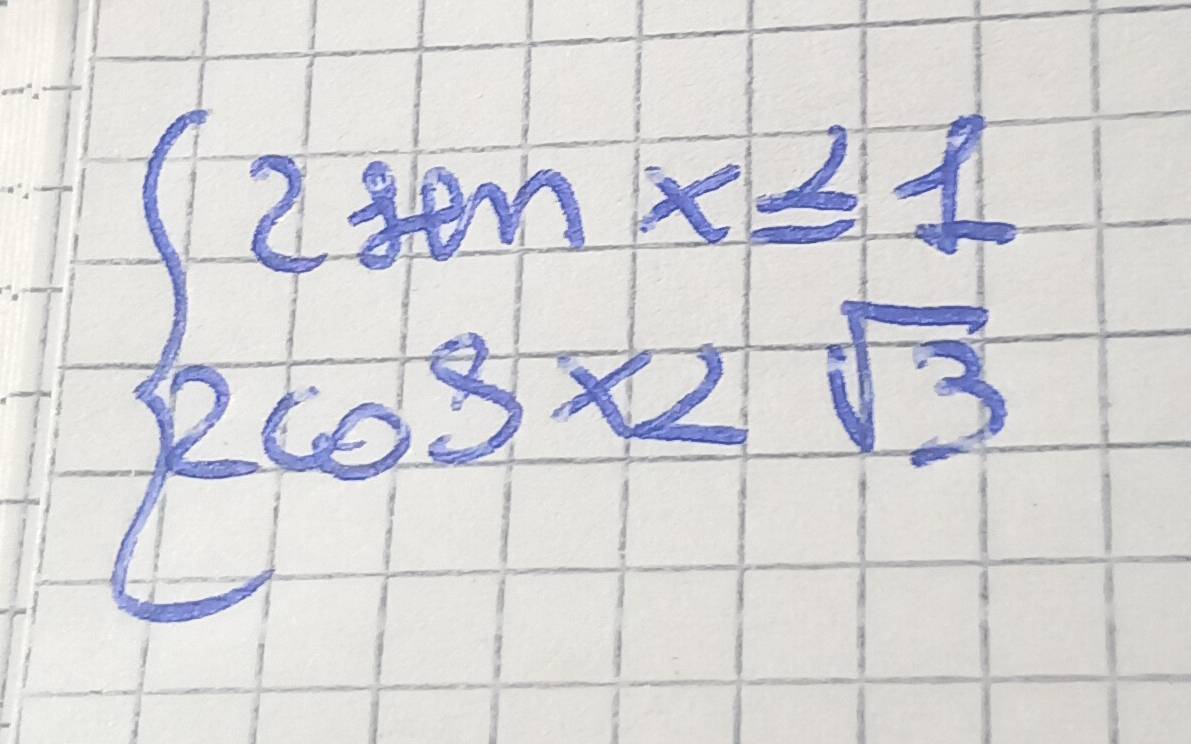 2 sen x ≤ 1
2 cos x < √3